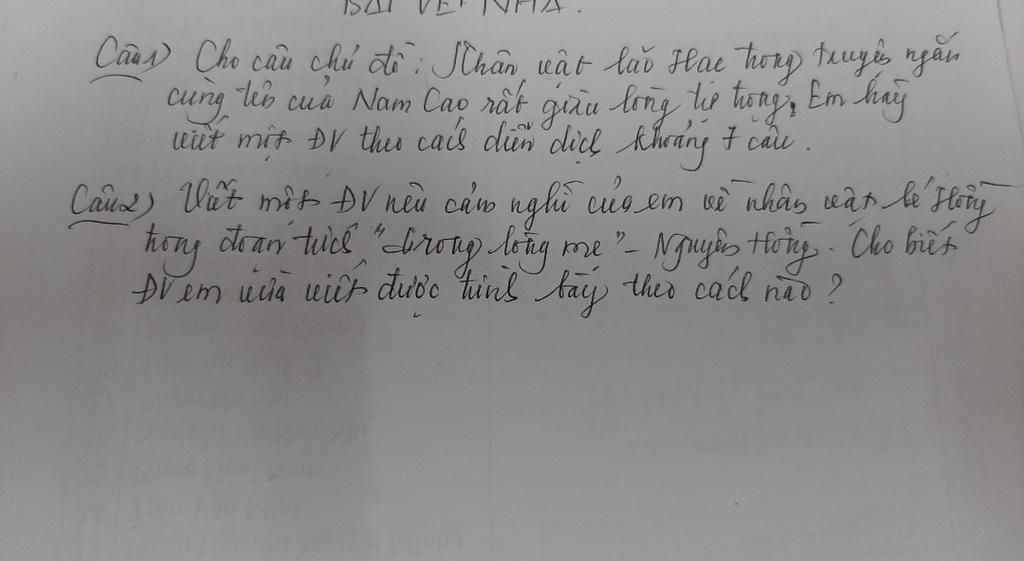 BÀI VỀ NHÀ.
Câu1) Cho câu chủ đề: Nhân vật lão Hạc trong truyện ngắn
cùng tên của Nam Cao rất giàu lòng tự trọng. Em hãy
viết một ĐV theo cách diễn dịch khoảng 7 câu.
Câu2) Viết một ĐV nêu cảm nghĩ của em về nhân vật bé Hồng
trong đoạn trích "Trong lòng mẹ" - Nguyên Hồng. Cho biết
ĐV em vừa viết được trình bày theo cách nào?